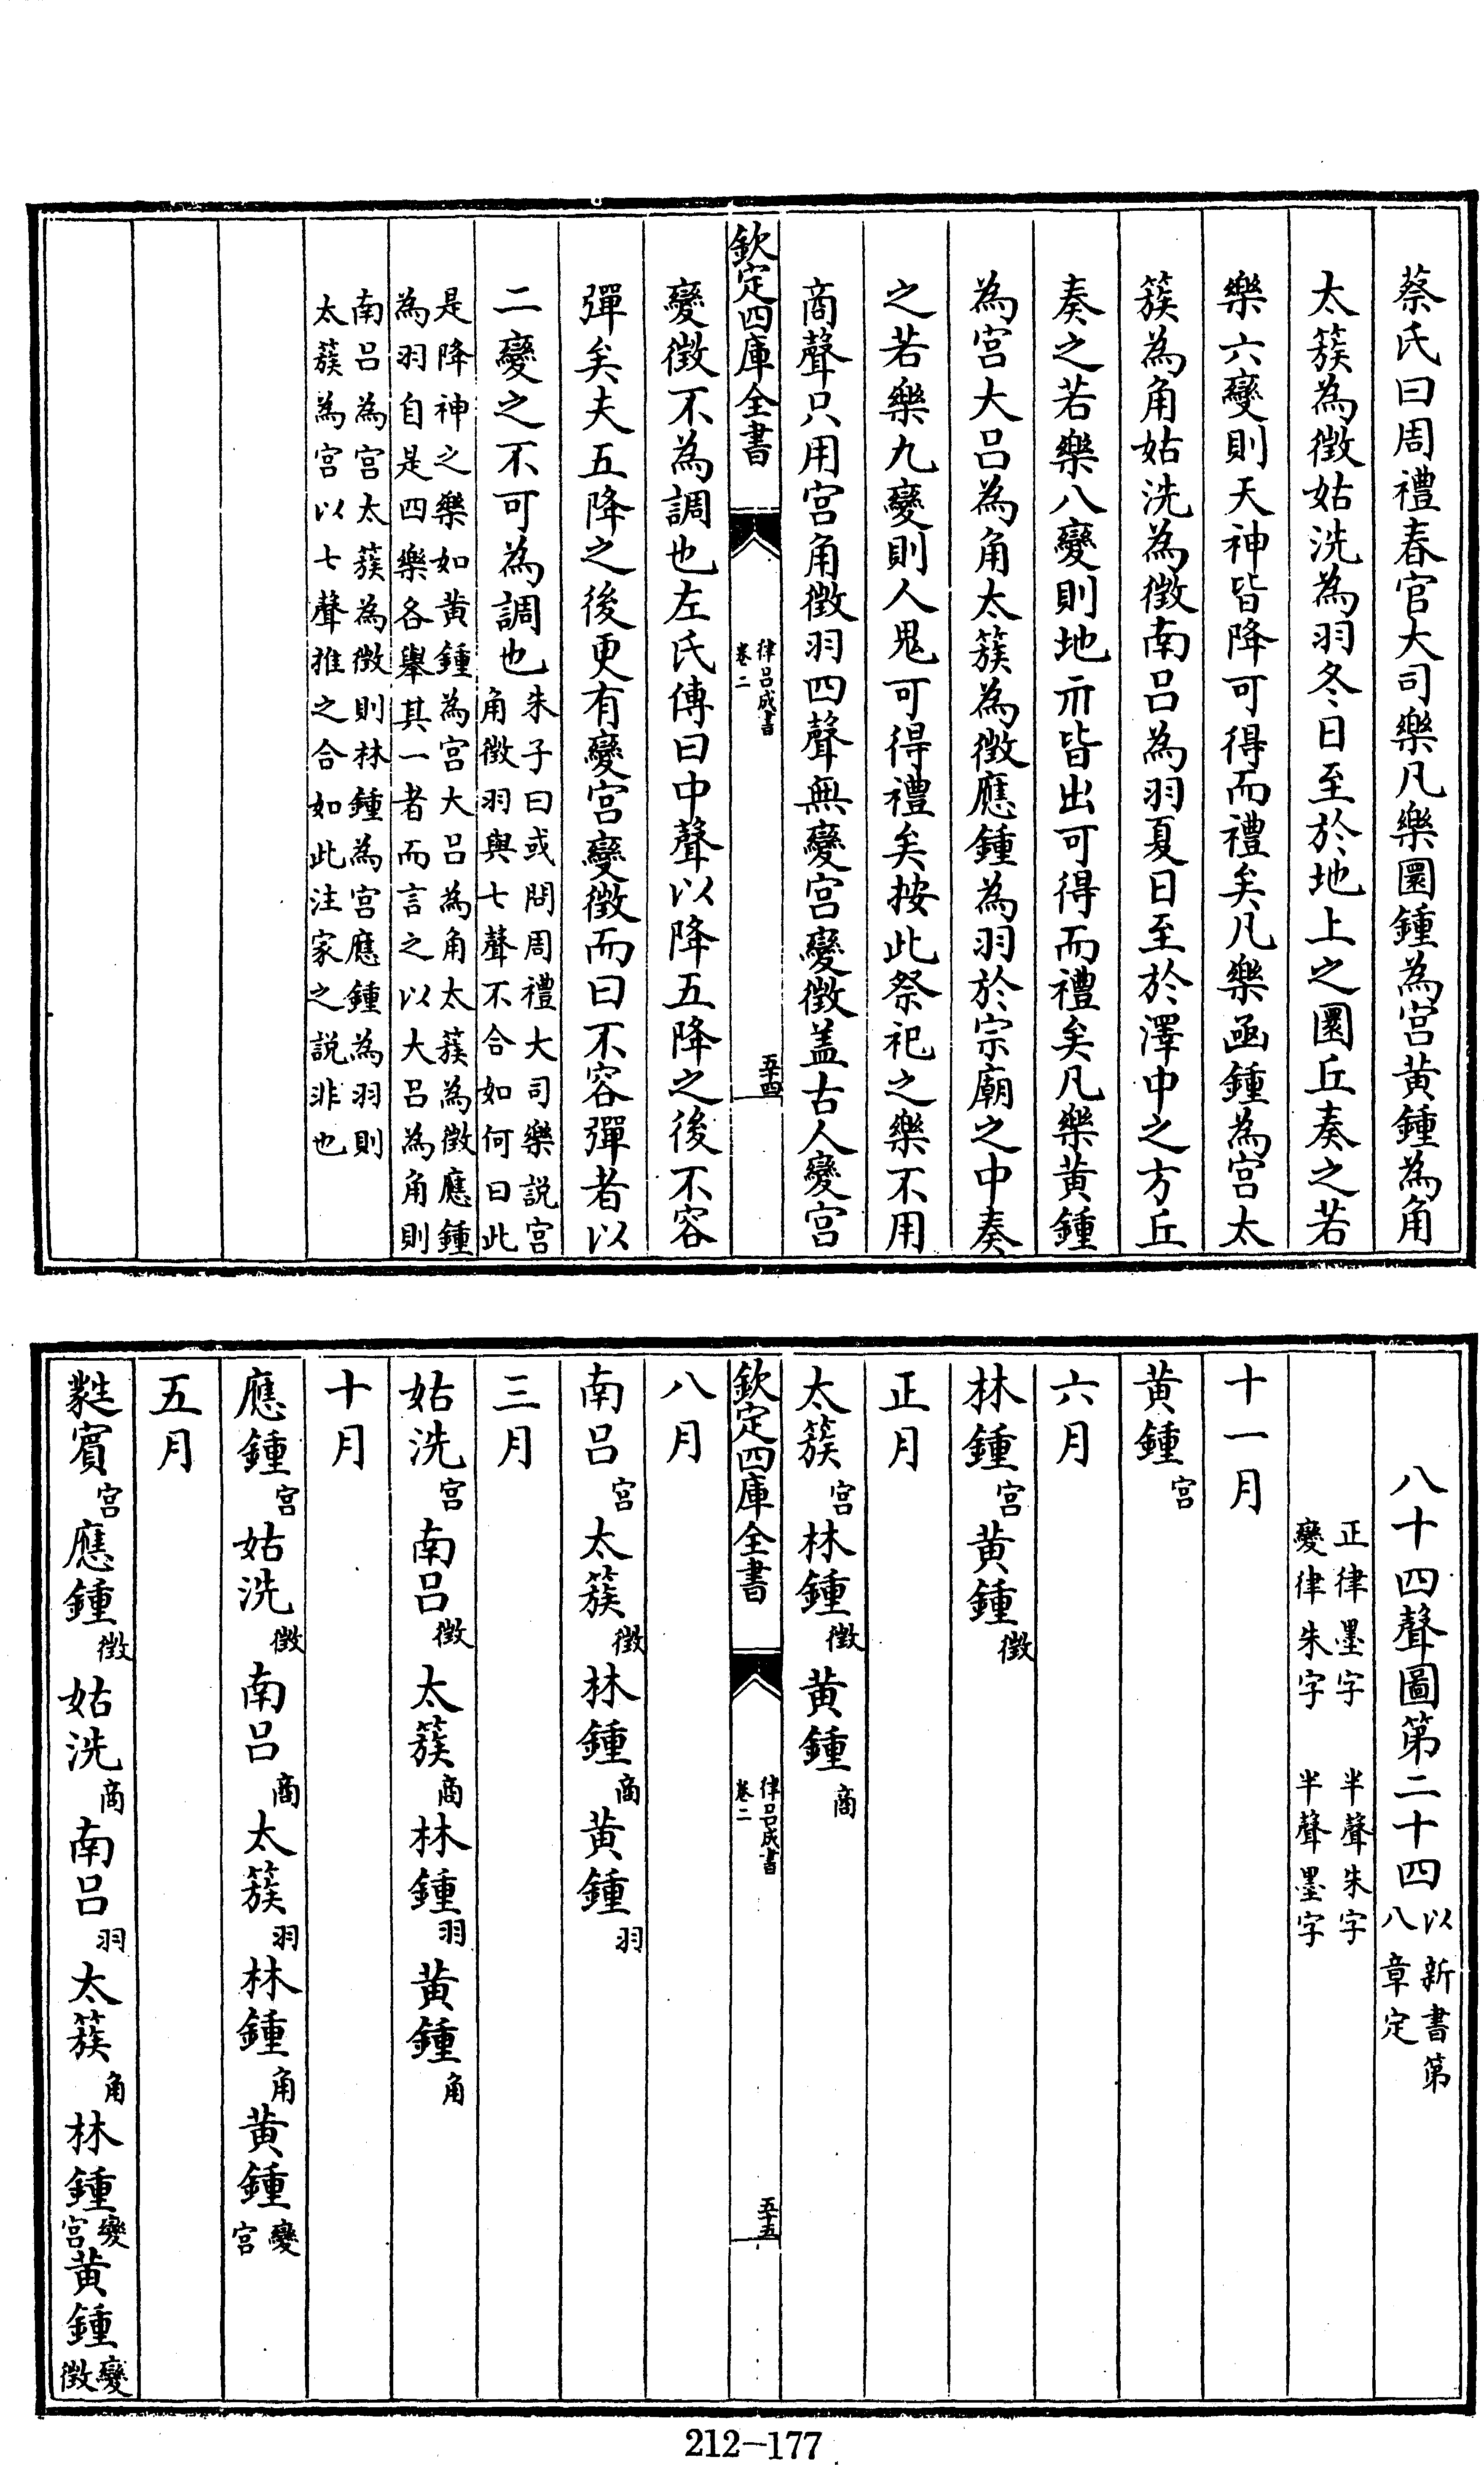 蔡氏曰周禮春官大司樂凡樂圜鍾為宫黄鍾為角
太簇為徴姑洗為羽冬日至於地上之圜丘奏之若
樂六變則天神皆降可得而禮矣凡樂函鍾為宫太
簇為角姑洗為徴南吕為羽夏日至於澤中之方丘
奏之若樂八變則地示皆出可得而禮矣凡樂黄鍾
為宫大吕為角太簇為徴應鍾為羽於宗廟之中奏
之若樂九變則人鬼可得禮矣按此祭祀之樂不用
商聲只用宫角徴羽四聲無變宫變徴盖古人變宫
欽定四庫全書
律吕成書
卷二
五十四
變徴不為調也左氏傳曰中聲以降五降之後不容
彈矣夫五降之後更有變宫變徴而曰不容彈者以
二變之不可為調也
朱子曰或問周禮大司樂説宫
角徴羽與七聲不合如何曰此
是降神之樂如黄鍾為宫大吕為角太簇為徴應鍾
為羽自是四樂各舉其一者而言之以大吕為角則
南吕為宫太簇為徴則林鍾為宫應鍾為羽則
太簇為宫以七聲推之合如此注家之説非也
八十四聲圖第二十四
以新書第
八章定
正律墨字 半聲朱字
變律朱字 半聲墨字
十一月
黄鍾宫
六月
林鍾宫黄鍾徴
正月
太簇宫林鍾徴黄鍾商
欽定四庫全書
律吕成書
卷二
五十五
八月
南吕宫太簇徴林鍾商黄鍾羽
三月
姑洗宫南吕徴太簇商林鍾羽黄鍾角
十月
應鍾宫姑洗徴南吕商太簇羽林鍾角黄鍾變宫
五月
蕤賓宫應鍾徴姑洗商南吕羽太簇角林鍾變宫黄鍾變徴
212-177